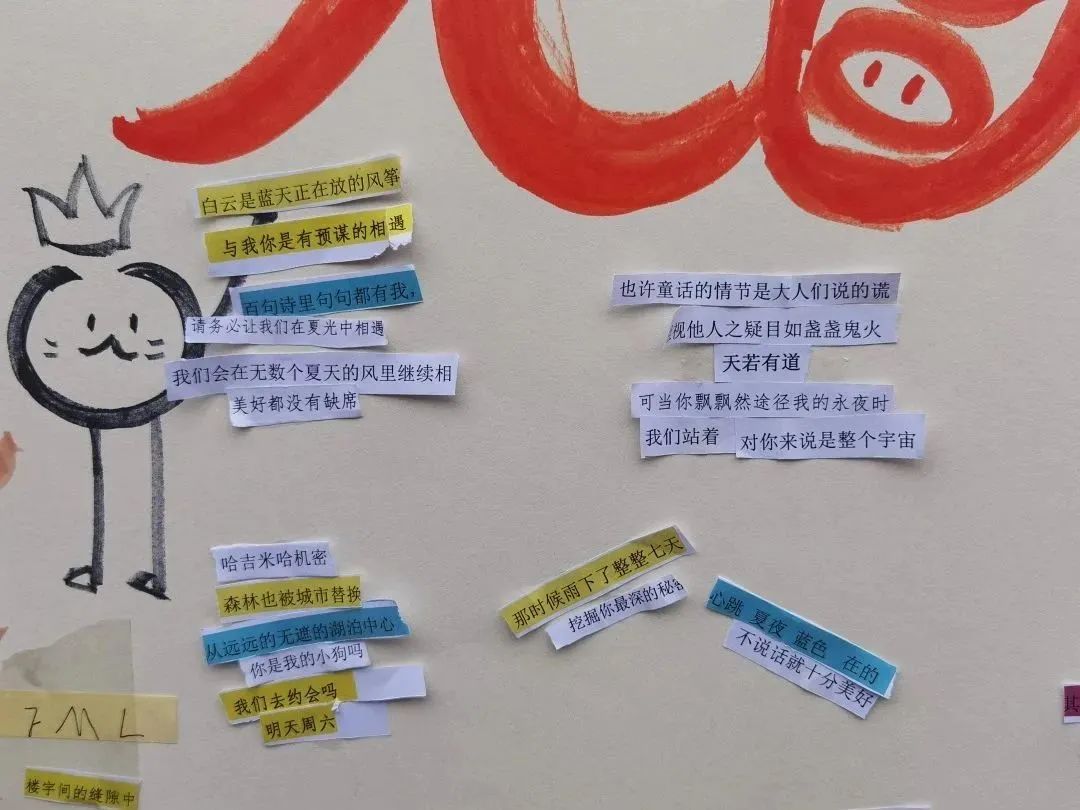 白云是蓝天正在放的风筝
与我你是有预谋的相遇
百句诗里句句都有我，
请务必让我们在夏光中相遇
我们会在无数个夏天的风里继续相
美好都没有缺席
也许童话的情节是大人们说的谎
视他人之疑目如盏盏鬼火
天若有道
可当你飘飘然途径我的永夜时
我们站着 对你来说是整个宇宙
哈吉米哈机密
森林也被城市替换
从远远的无遮的湖泊中心
你是我的小狗吗
我们去约会吗
明天周六
那时候雨下了整整七天
挖掘你最深的秘密
心跳 夏夜 蓝色 在的
不说话就十分美好
FML
楼宇间的缝隙中
其